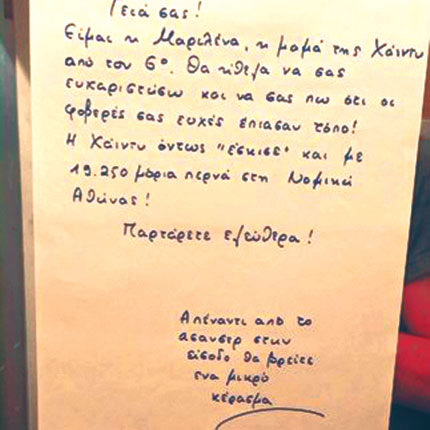 Γειά σας!
Είμαι η Μαριλένα, η μαμά της Χάιντυ
από τον 6º. Θα ήθελα να σας
ευχαριστώσω και να σας πω ότι οι
φοβερές σας ευχές έπιασαν τόπο!
Η Χάιντυ όντως "έσκισε" και με
19.250 μόρια περνά στη Νομική
Αθήνας!
Παρτάρετε ελεύθερα!
Απέναντι από το
ασανσερ στην
είσοδο θα βρείτε
ένα μικρό
κέρασμα